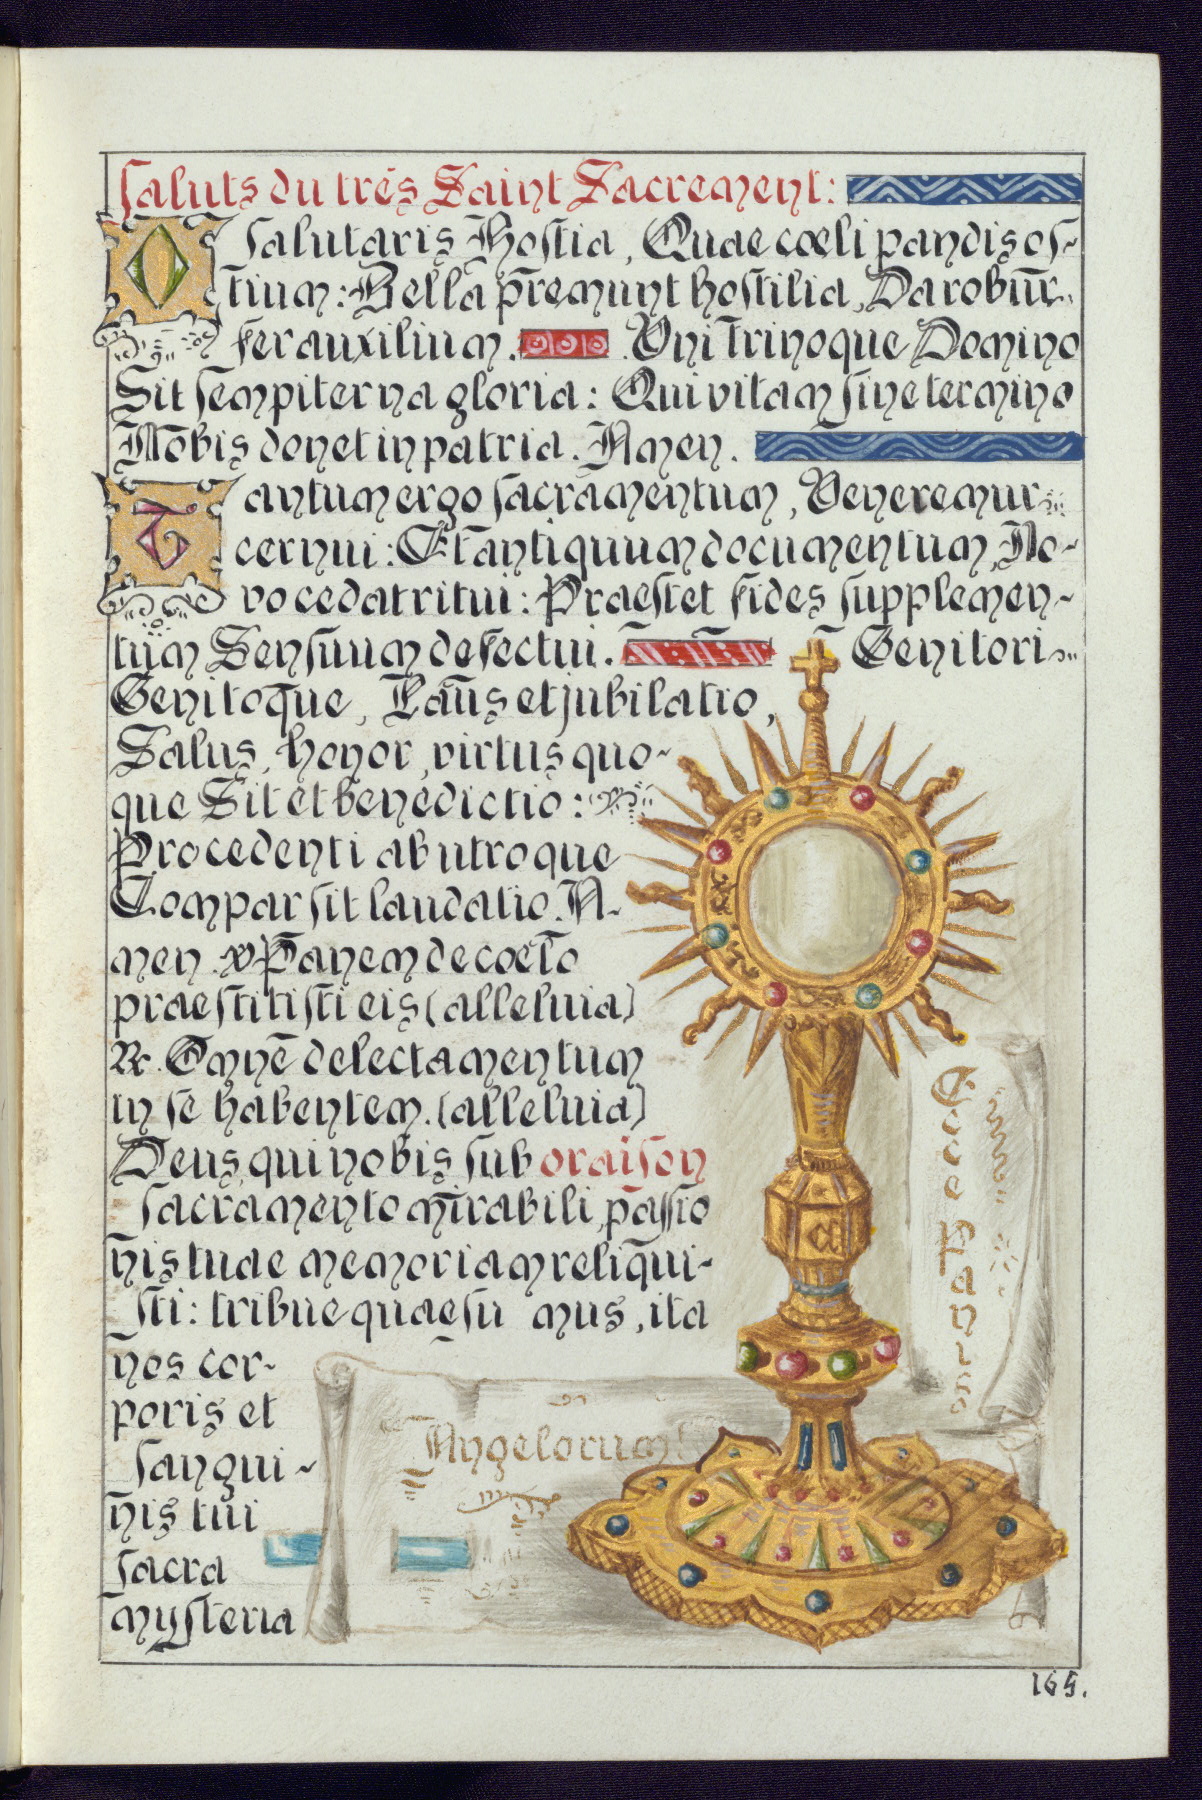 Saluts du très Saint Sacrement:
O salutaris Hostia, Quae cœli pandis os-
tium: Bella premunt hostilia, Da robur..
fer auxilium. Uni Trinoque Domino
Sit sempiterna gloria: Qui vitam sine termino
Nobis donet in patria. Amen.
Tantum ergo sacramentum, Veneremur
cernui: Et antiquum documentum, No-
vo cedat ritui: Praestet fides supplemen-
tum Sensuum defectui. Genitori
Genitoque, Laus et jubilatio,
Salus, honor, virtus quo-
que Sit et benedictio:
Procedenti ab utroque
Compar sit laudatio. A-
men. ℣ Panem de coelo
praestitisti eis (alleluia)
℟. Omne delectamentum
in se habentem. (alleluia)
Deus, qui nobis sub oraison
sacramento mirabili, passio
nis tuae memoriam reliqui-
sti: tribue quaesu mus, ita
nos cor-
poris et
sangui-
nis tui
sacra
mysteria
Ecce Panis
Angelorum!
165.